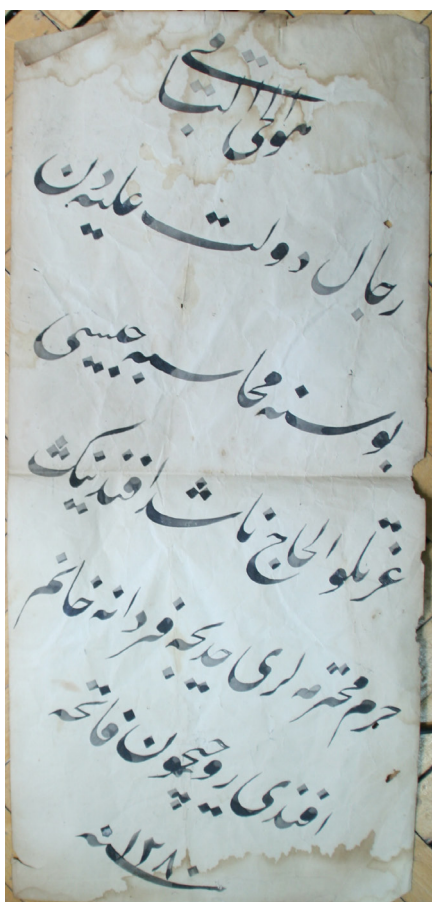 هوالحی الباقی
رجال دولت علیه دن
بوسنه محاسبه جیسی
عزتلو الحاج ناشد افندینك
حرم محترمه لری خدیجه فردانه خانم
افندی روحیچون فاتحه
سنه ١٢٨٠